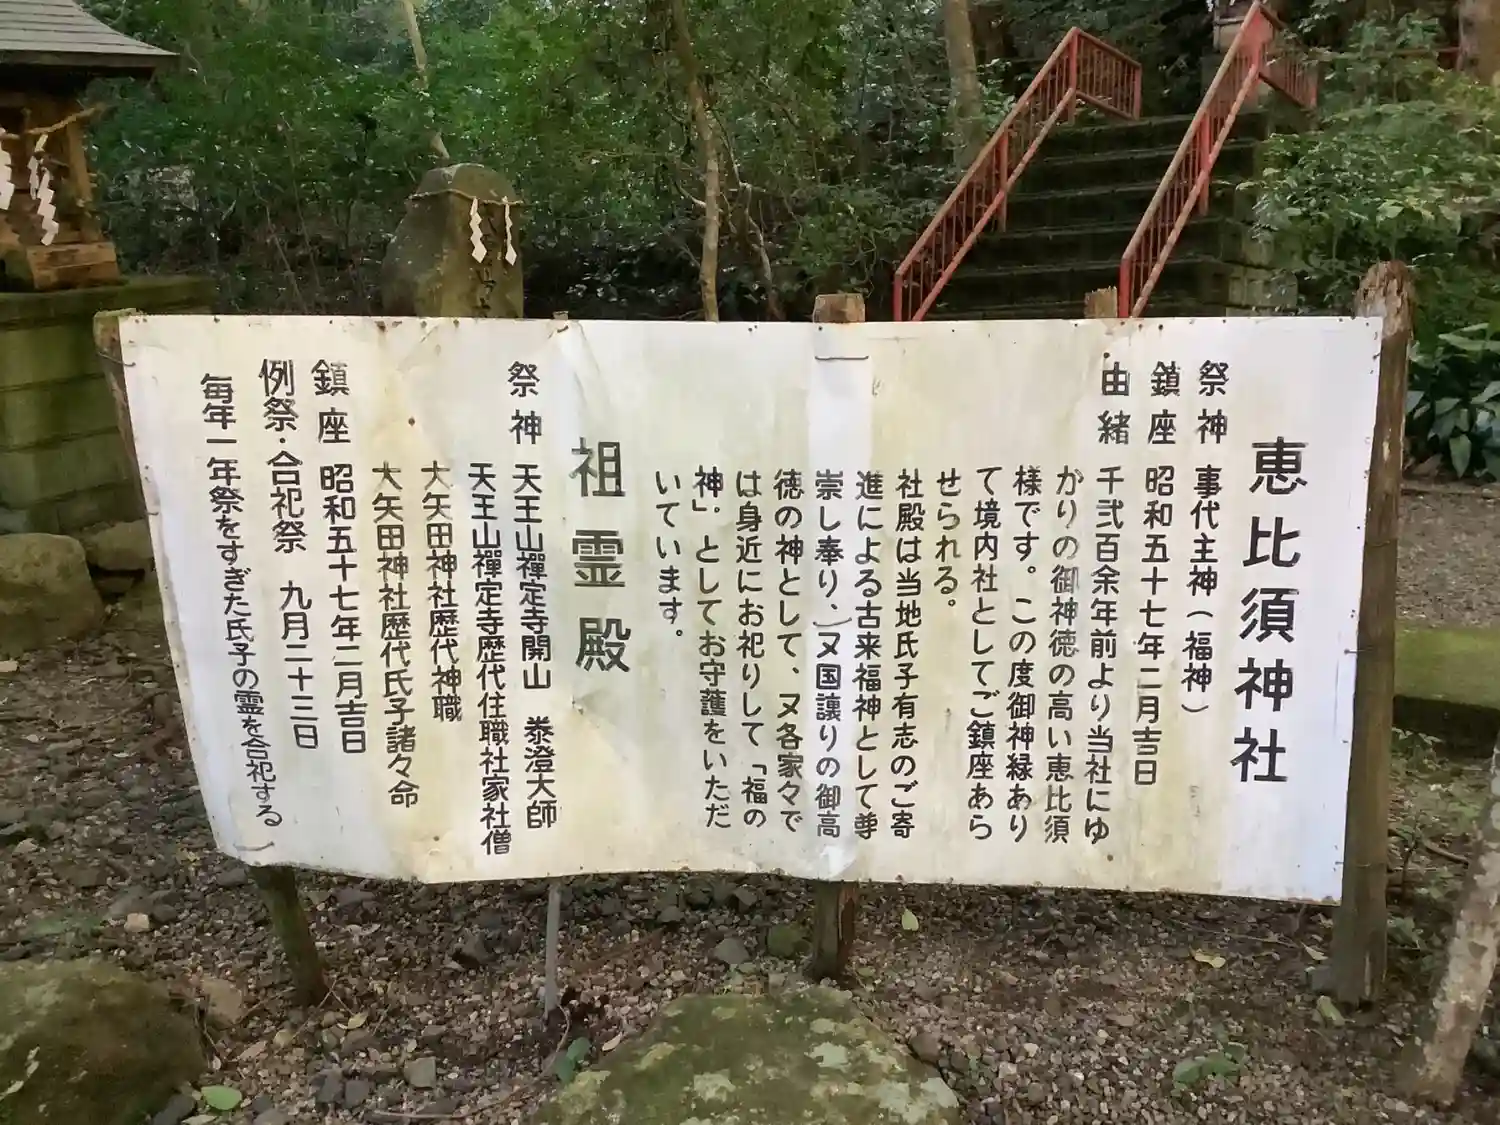 恵比須神社
祭神 事代主神(福神)
鎮座 昭和五十七年二月吉日
由緒 千弐百余年前より当社にゆ
かりの御神徳の高い恵比須
様です。この度御神縁あり
て境内社としてご鎮座あら
せられる。
社殿は当地氏子有志のご寄
進による古来福神として尊
崇し奉り、又国譲りの御高
徳の神として、又各家々で
は身近にお祀りして「福の
神」。としてお守護をいただ
いています。
祖霊殿
祭神 天王山禪定寺開山 泰澄大師
天王山禪定寺歴代住職社家社僧
大矢田神社歴代神職
大矢田神社歴代氏子諸々命
鎮座 昭和五十七年二月吉日
例祭・合祀祭 九月二十三日
毎年一年祭をすぎた氏子の霊を合祀する